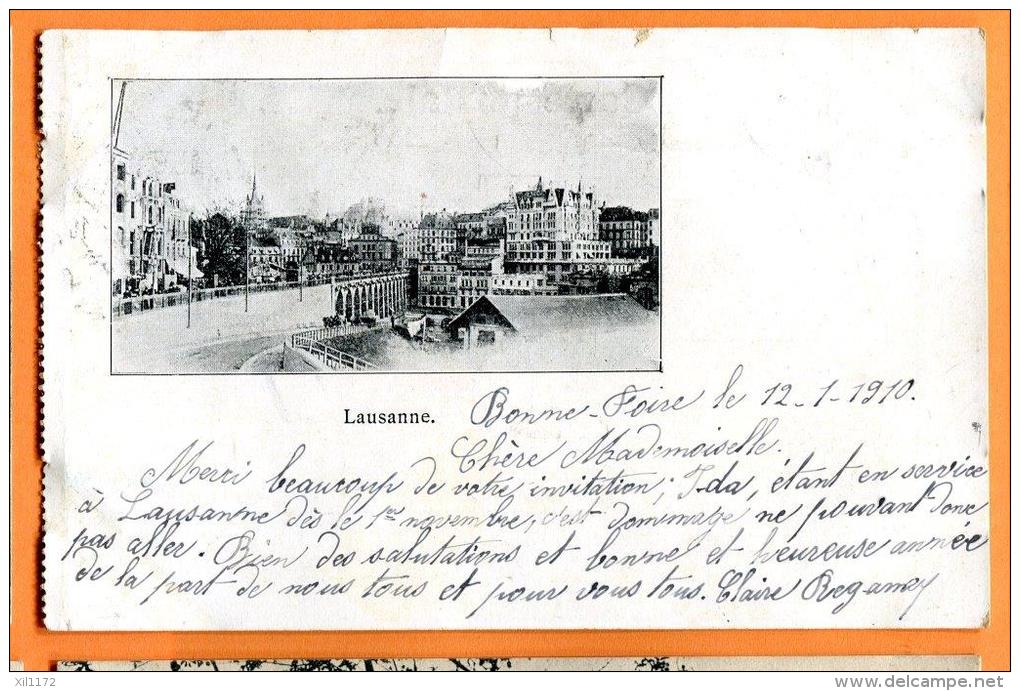 Lausanne.
Bonne-Foire le 12-1-1910.
Chère Mademoiselle.
Merci beaucoup de votre invitation; Ida, étant en service
à Lausanne dès le 1er novembre, c'est dommage ne pouvant donc
pas aller. Bien des salutations et bonne et heureuse année
de la part de nous tous et pour vous tous. Claire Regamey
xil1172
delcampe.net